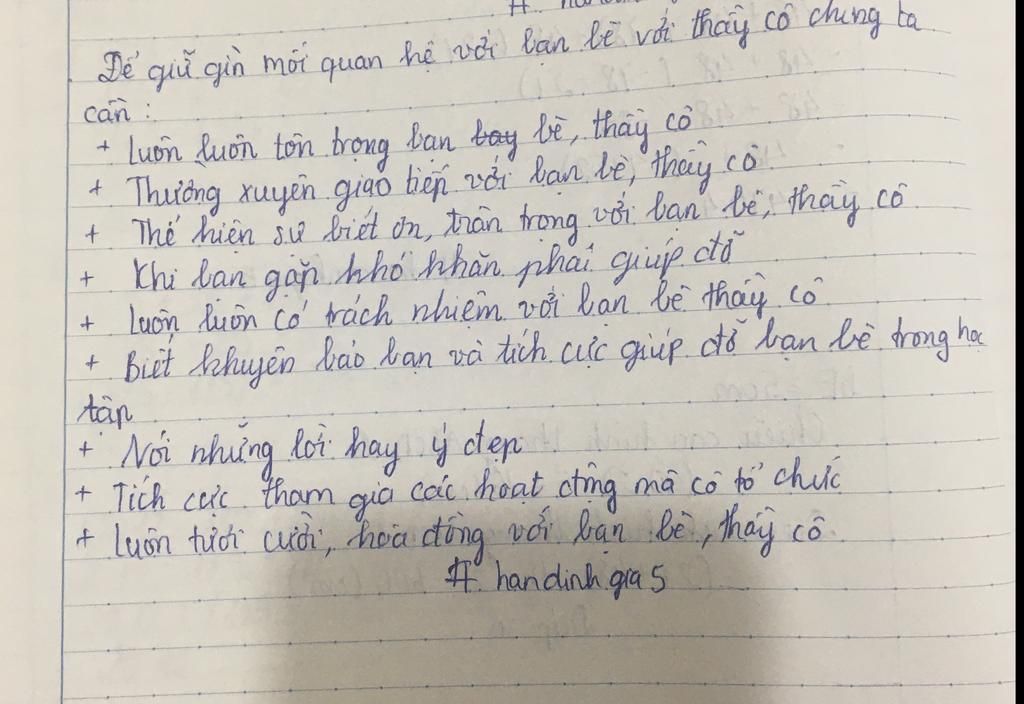 Để giữ gìn mối quan hệ với bạn bè với thầy cô chúng ta
cần :
+ Luôn luôn tôn trọng bạn bay bè, thầy cô
+ Thường xuyên giao tiếp với bạn bè, thầy cô
+ Thể hiện sự biết ơn, trân trọng với bạn bè, thầy cô
+ Khi bạn gặp khó khăn phải giúp đỡ
+ Luôn luôn có trách nhiệm với bạn bè thầy cô
+ Biết khuyên bảo bạn và tích cực giúp đỡ bạn bè trong học
tập
+ Nói những lời hay ý đẹp
+ Tích cực tham gia các hoạt động mà cô tổ chức
+ Luôn tươi cười, hoà đồng với bạn bè, thầy cô
# handinhgia5